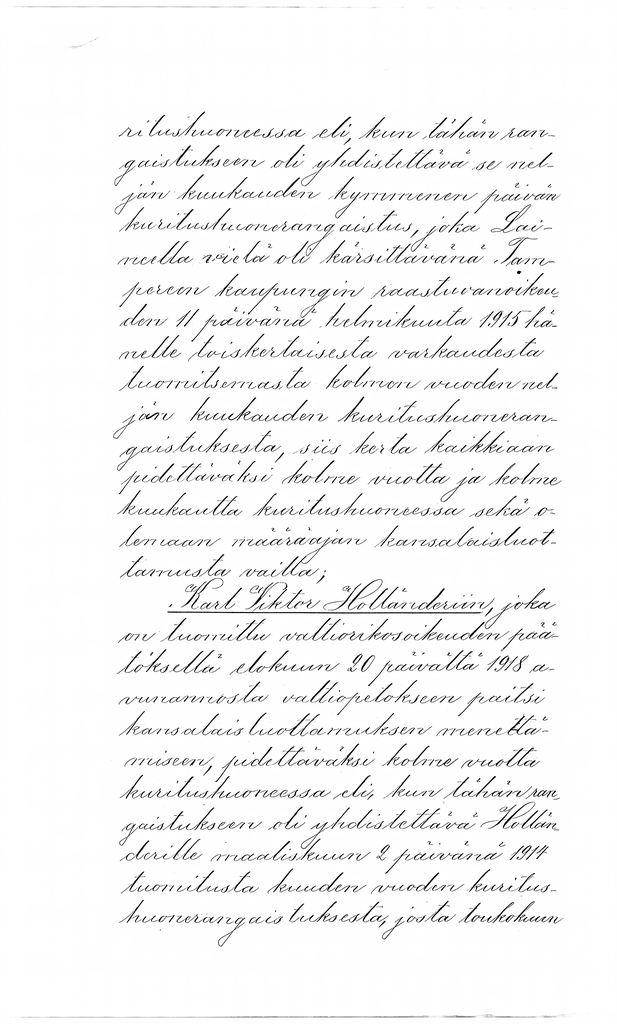 ritushuoneessa eli, kun tähän ran-
gaistukseen oli yhdistettävä se nel-
jän kuukauden kymmenen päivän
kuritushuonerangaistus, joka Lai-
neella vielä oli kärsittävänä Tam-
pereen kaupungin raastuvanoikeu-
den 11 päivänä helmikuuta 1915 hä-
nelle toiskertaisesta varkaudesta
tuomitsemasta kolmen vuoden nel-
jän kuukauden kuritushuoneran-
gaistuksesta, siis kerta kaikkiaan
pidettäväksi kolme vuotta ja kolme
kuukautta kuritushuoneessa sekä o-
lemaan määräajan kansalaisluot-
tamusta vailla;
Karl Viktor Holländeriin, joka
on tuomittu valtiorikosoikeuden pää-
töksellä elokuun 20 päivältä 1918 a-
vunannosta valtiopetokseen paitsi
kansalaisluottamuksen menettä-
miseen, pidettäväksi kolme vuotta
kuritushuoneessa eli, kun tähän ran-
gaistukseen oli yhdistettävä Hollän-
derille maaliskuun 2 päivänä 1914
tuomitusta kuuden vuoden kuritus-
huonerangaistuksesta, josta toukokuun